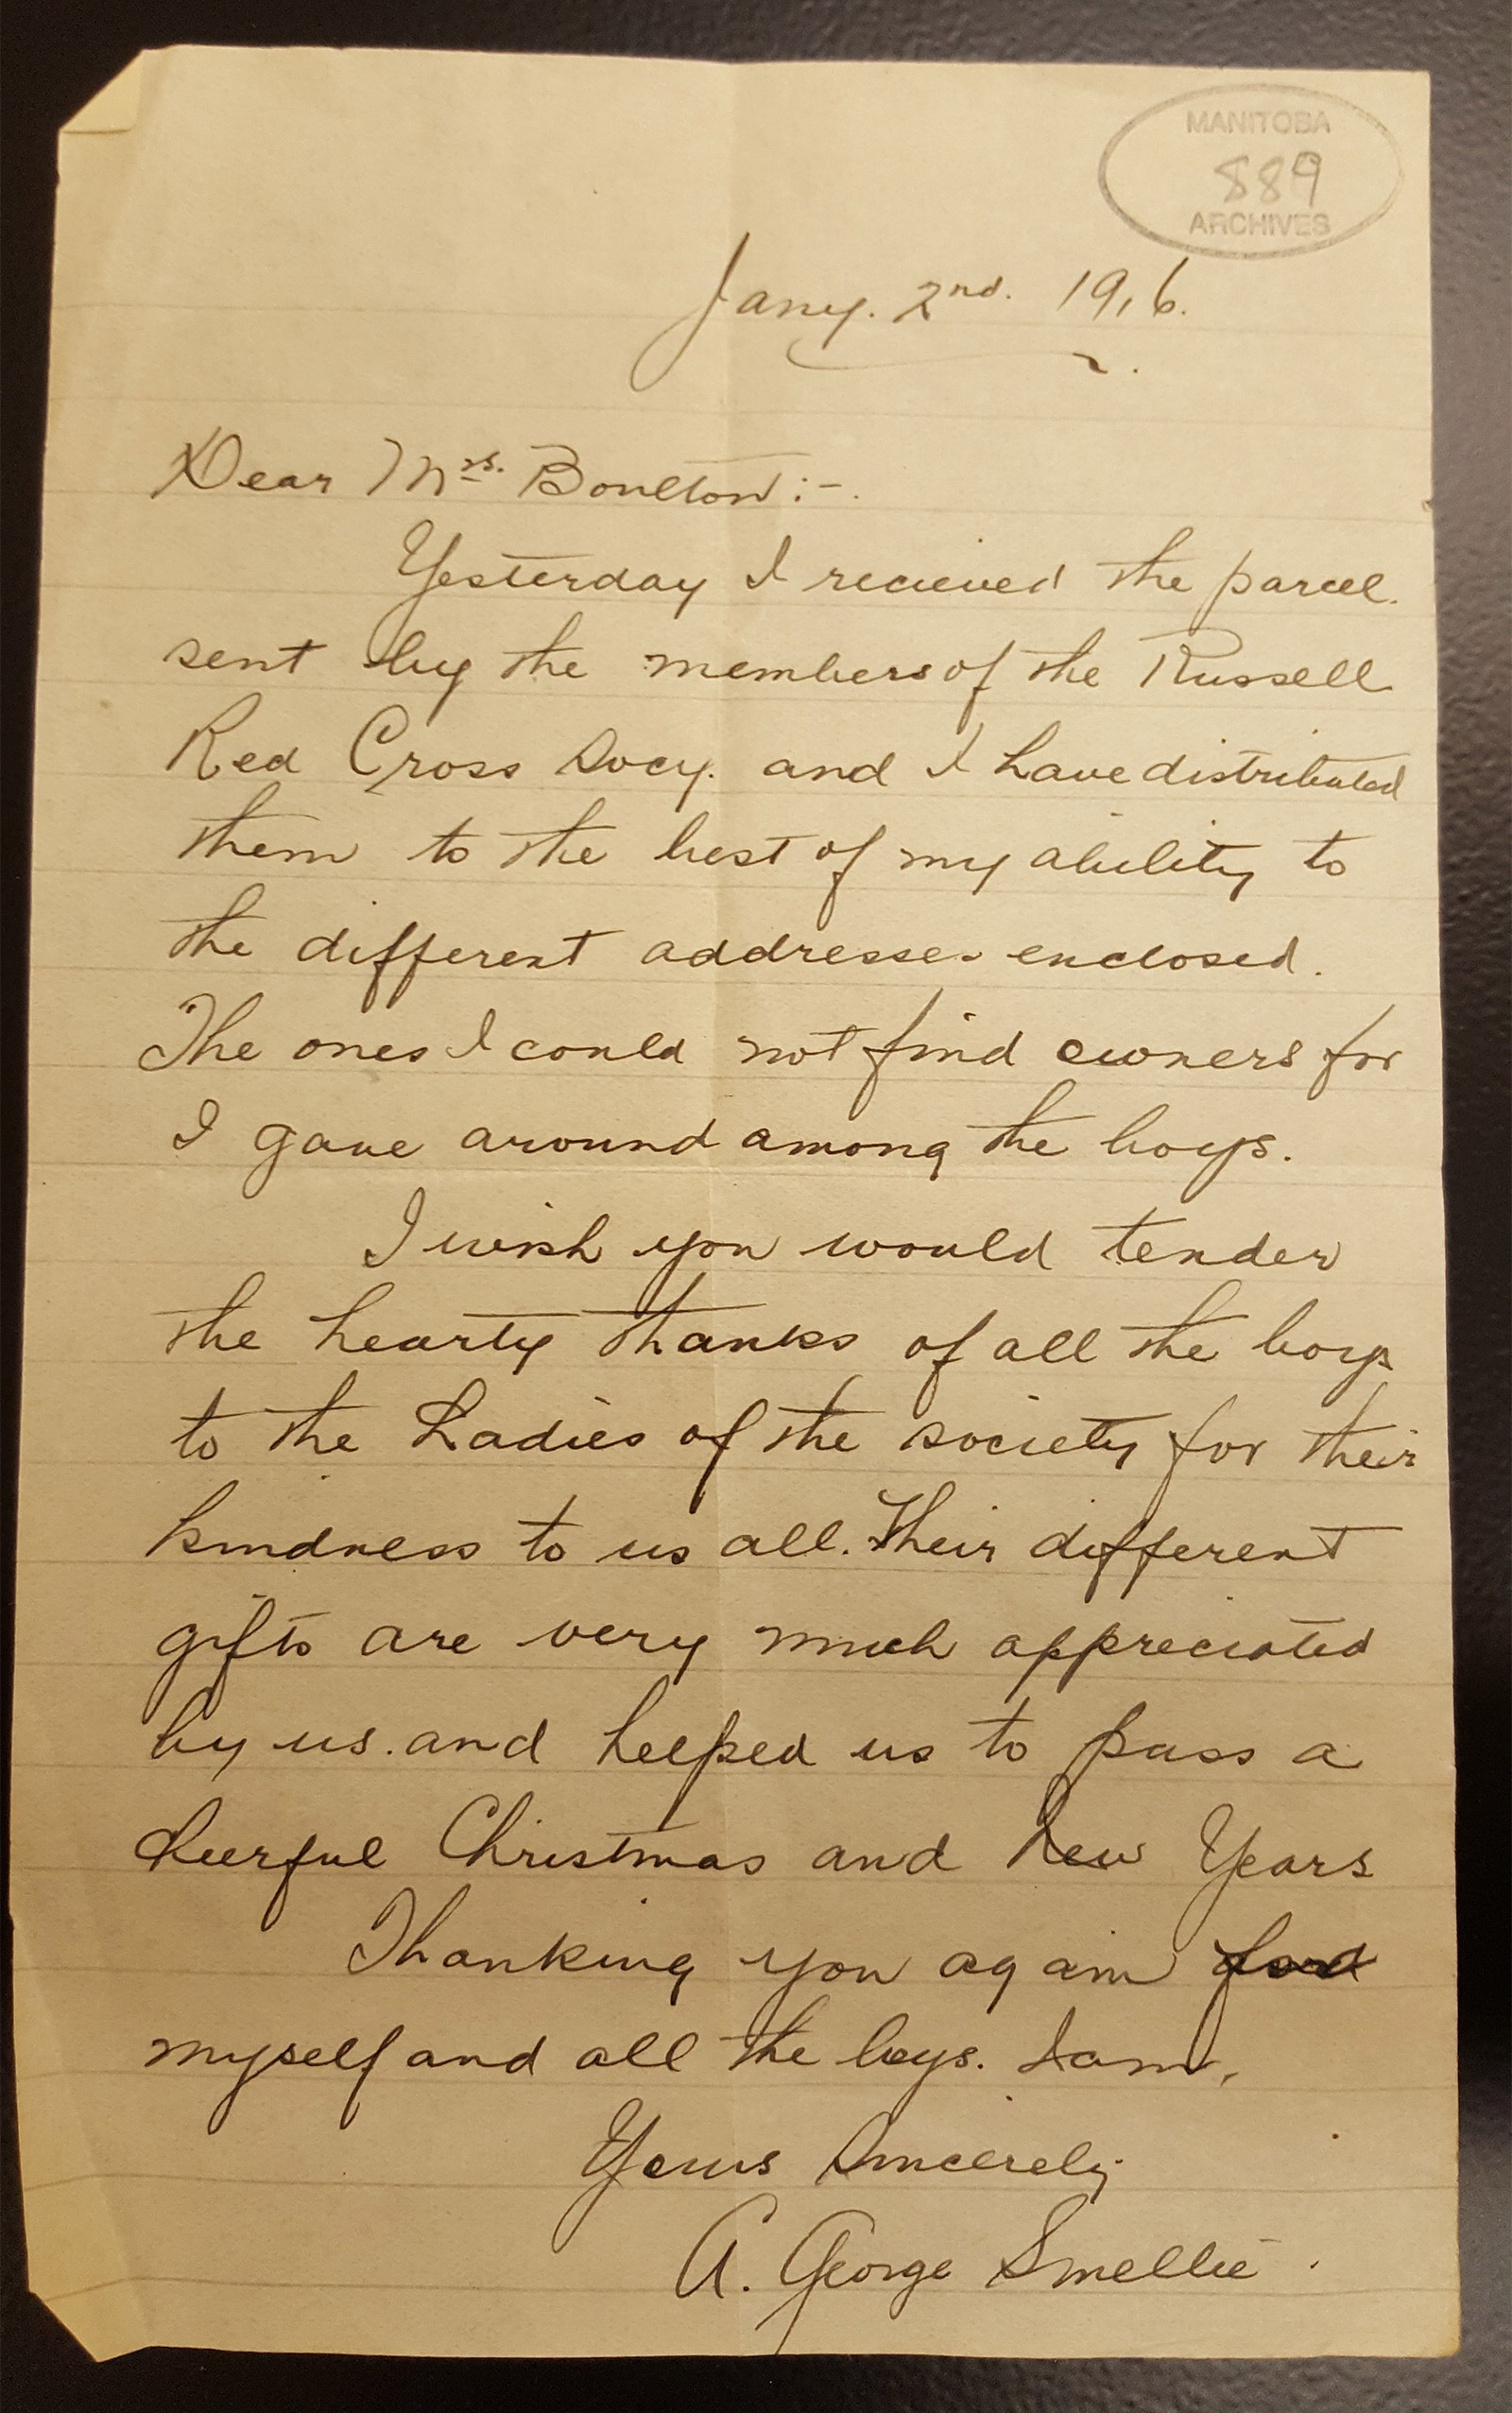 MANITOBA
889
ARCHIVES
Jany. 2nd. 1916.
Dear Mrs. Boulton:-.
Yesterday I recieved the parcel.
sent by the members of the Russell
Red Cross Socy. and I have distributed
them to the best of my ability to
the different addresses enclosed.
The ones I could not find owners for
I gave around among the boys.
I wish you would tender
the hearty thanks of all the boys
to the Ladies of the society for their
kindness to us all. Their different
gifts are very much appreciated
by us. and helped us to pass a
cheerful Christmas and New Years
Thanking you again
myself and all the boys. I am,
Yours Sincerely
A. George Smellie.